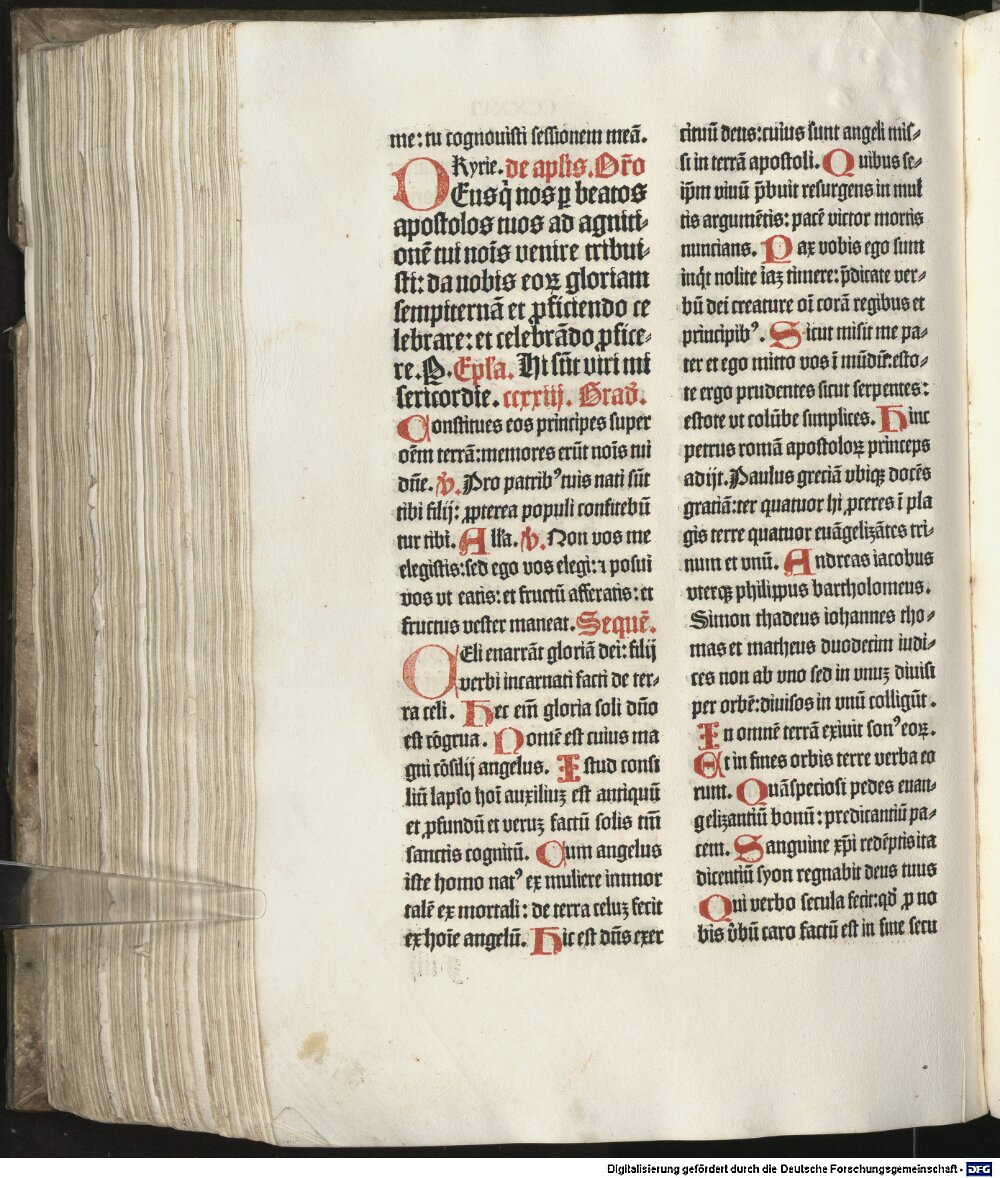 me: tu cognouisti sessionem meā.
Kyrie. de aplis. Oro
DEus q̇ nos ꝑ beatos
apostolos tuos ad agniti-
onē tui nois venire tribui-
sti: da nobis eoꝝ gloriam
sempiternā et ꝓficiendo ce
lebrare: et celebrādo ꝓfice-
re. P. Epl'a. Hi sūt viri mi
sericordie. ccxxiij. Grad.
Constitues eos principes super
oēm terrā: memores erūt nois tui
dñe. V. Pro patribꝰ tuis nati sūt
tibi filij: ꝓpterea populi confitebū
tur tibi. All'a. V. Non vos me
elegistis: sed ego vos elegi: ⁊ posui
vos vt eatis: et fructū afferatis: et
fructus vester maneat. Sequē.
CEli enarrāt gloriā dei: filij
verbi incarnati facti de ter-
ra celi. Hec em̄ gloria soli dño
est cōgrua. Nomē est cuius ma
gni cōsilij angelus. Istud consi
liū lapso hoī auxiliuꝫ est antiquū
et ꝓfundū et veruꝫ factū solis tm̄
sanctis cognitū. Cum angelus
iste homo natꝰ ex muliere immor
talē ex mortali: de terra celuꝫ fecit
ex hoīe angelū. Hic est dñs exer
cituū deus: cuius sunt angeli mis-
si in terrā apostoli. Quibus se-
ip̄m viuū p̄buit resurgens in mul
tis argumētis: pacē victor mortis
nuncians. Pax vobis ego sum
inqt nolite iaꝫ timere: p̄dicate ver-
bū dei creature oī corā regibus et
principibꝰ. Sicut misit me pa-
ter et ego mitto vos ī mūdū: esto-
te ergo prudentes sicut serpentes:
estote vt colūbe simplices. Hinc
petrus romā apostoloꝝ princeps
adijt. Paulus greciā vbiqꝫ docēs
gratiā: ter quatuor hi ꝓceres ī pla
gis terre quatuor euāgelizātes tri-
num et vnū. Andreas iacobus
vterqꝫ philippus bartholomeus.
Simon thadeus iohannes tho-
mas et matheus duodecim iudi-
ces non ab vno sed in vnuꝫ diuisi
per orbē: diuisos in vnū colligūt.
In omnē terrā exiuit sonꝰ eoꝝ.
Et in fines orbis terre verba eo
rum. Quā speciosi pedes euan-
gelizantiū bonū: predicantiū pa-
cem. Sanguine xp̄i redēptis ita
dicentiū syon regnabit deus tuus
Qui verbo secula fecit: qd̄ ꝓ no
bis v̄bū caro factū est in fine secu
Digitalisierung gefördert durch die Deutsche Forschungsgemeinschaft - DFG